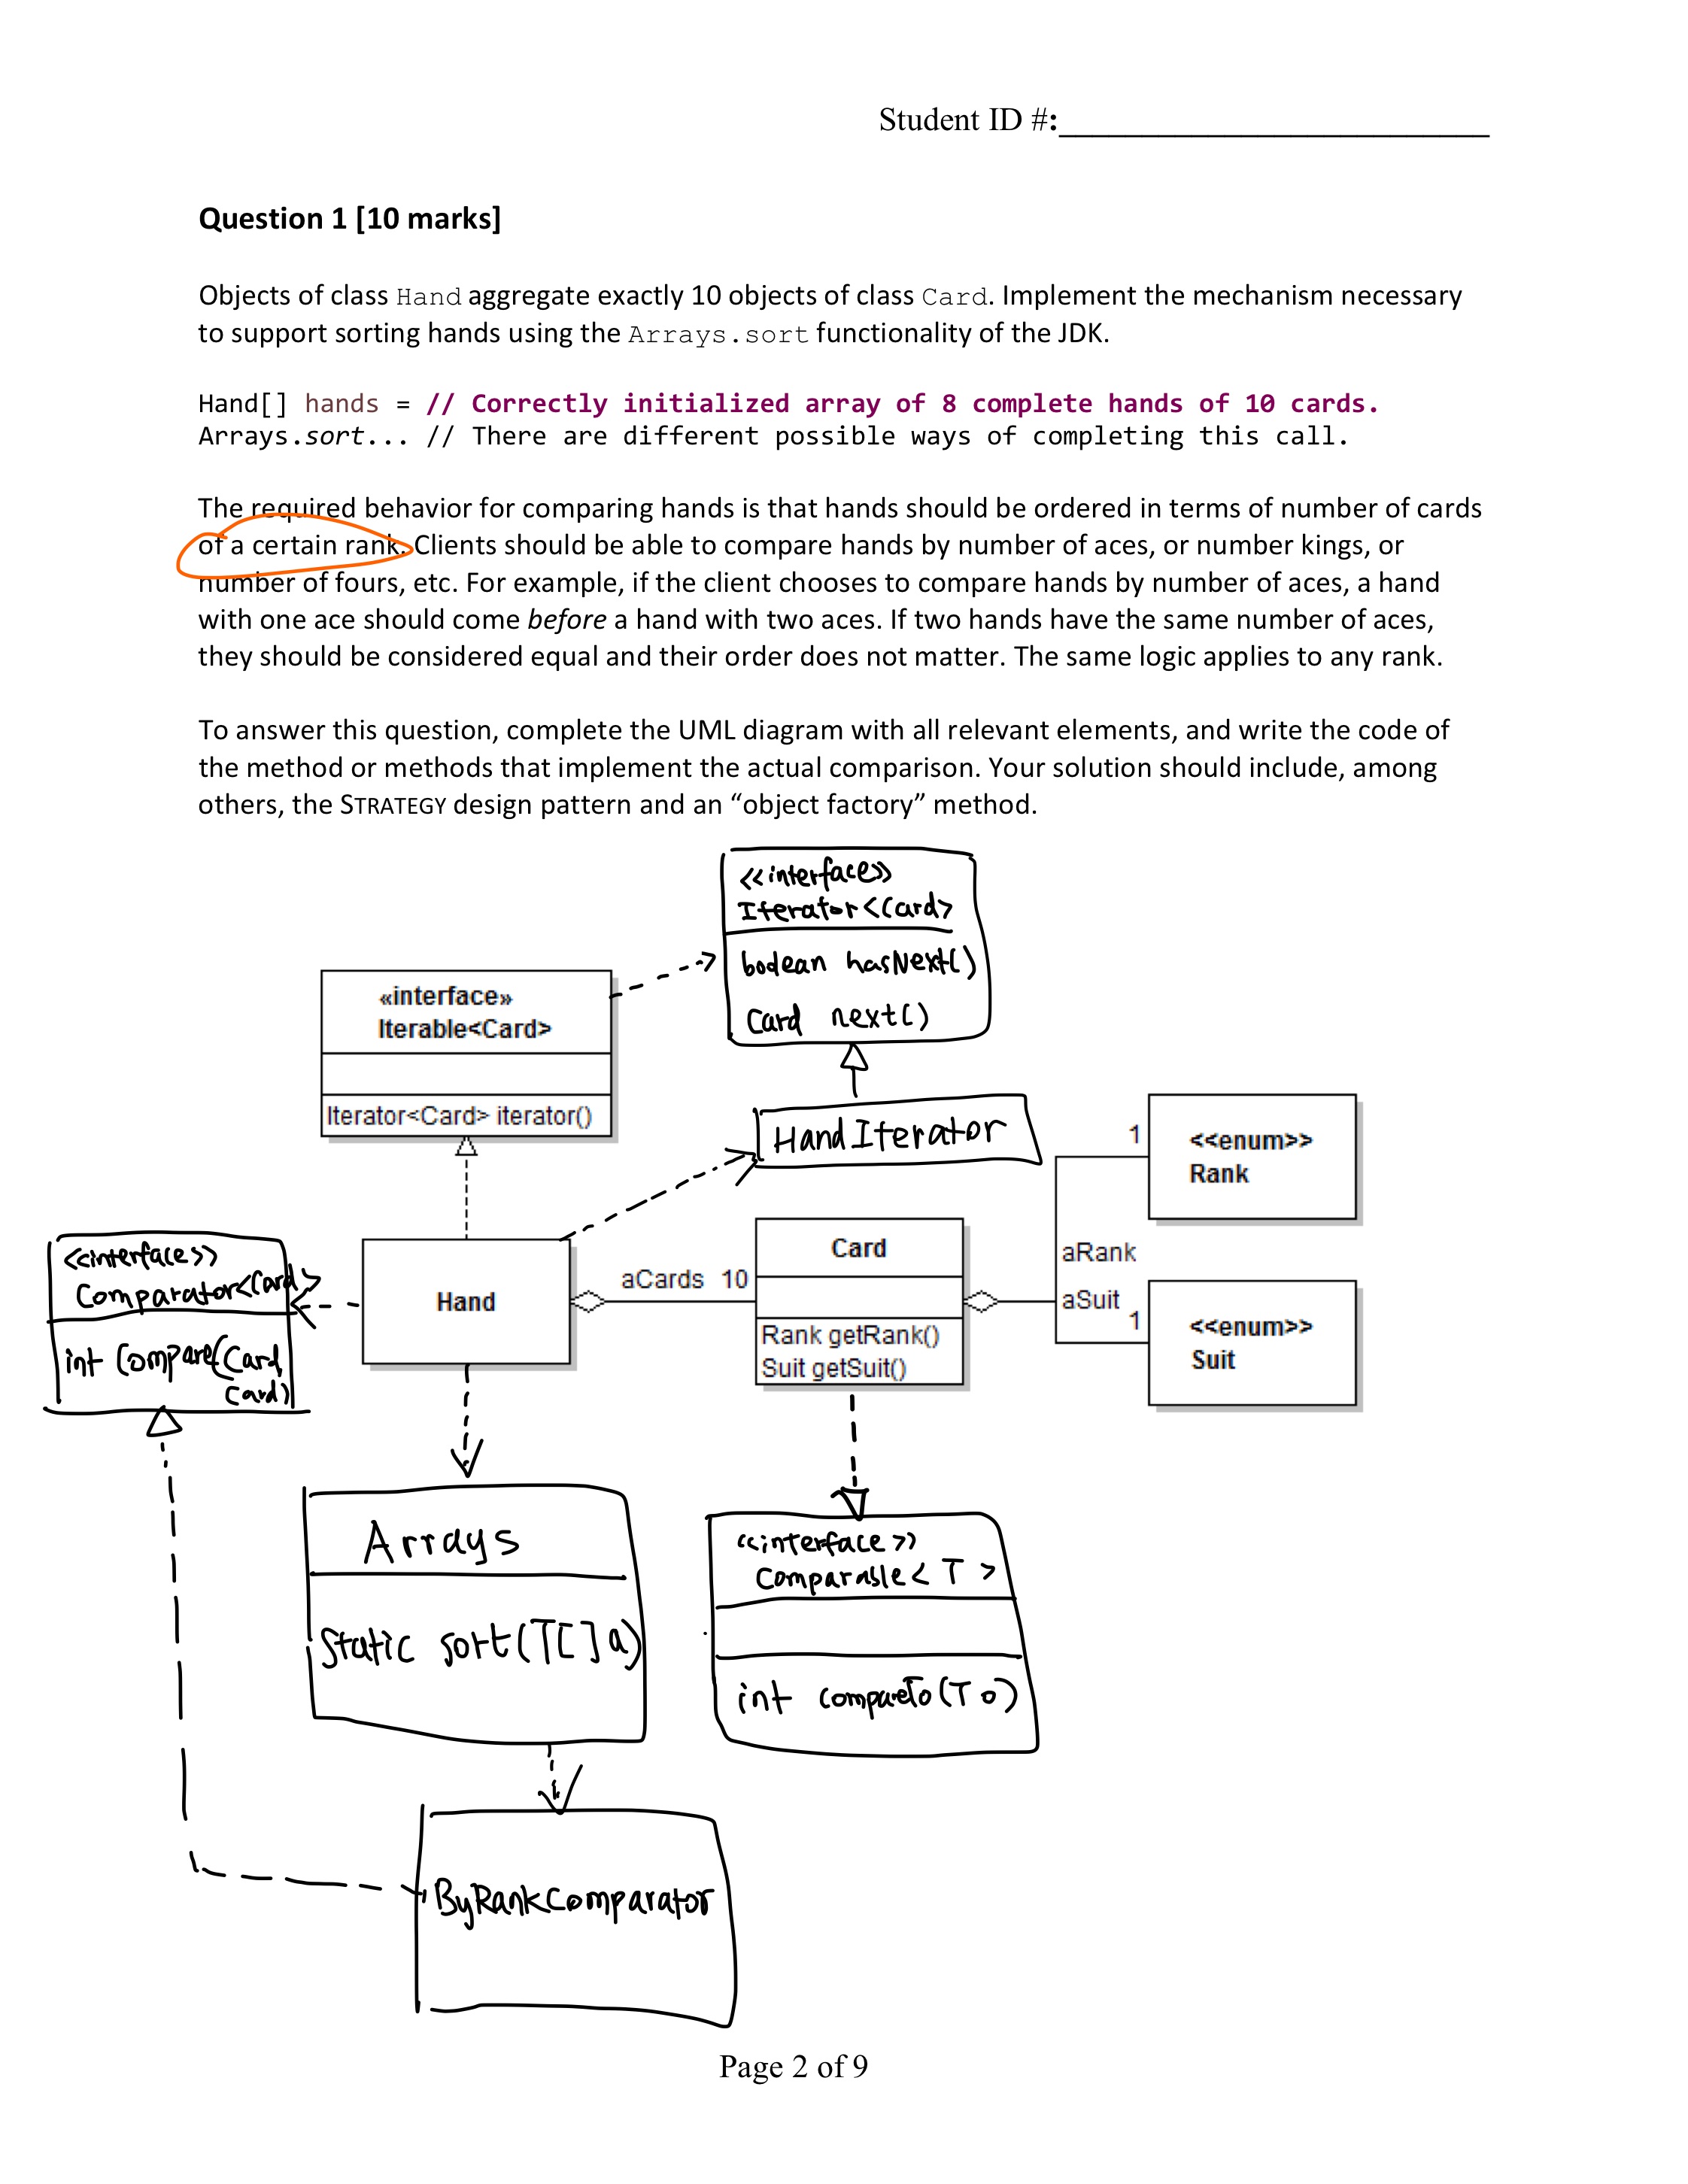 Student ID #:__________________________
Question 1 [10 marks]
Objects of class Hand aggregate exactly 10 objects of class Card. Implement the mechanism necessary
to support sorting hands using the Arrays.sort functionality of the JDK.
Hand[] hands = // Correctly initialized array of 8 complete hands of 10 cards.
Arrays.sort... // There are different possible ways of completing this call.
The required behavior for comparing hands is that hands should be ordered in terms of number of cards
of a certain rank. Clients should be able to compare hands by number of aces, or number kings, or
number of fours, etc. For example, if the client chooses to compare hands by number of aces, a hand
with one ace should come before a hand with two aces. If two hands have the same number of aces,
they should be considered equal and their order does not matter. The same logic applies to any rank.
To answer this question, complete the UML diagram with all relevant elements, and write the code of
the method or methods that implement the actual comparison. Your solution should include, among
others, the STRATEGY design pattern and an “object factory” method.
<<interface>>
Iterator<Card>
boolean hasNext()
Card next()
«interface»
Iterable<Card>
Iterator<Card> iterator()
HandIterator
1
<<enum>>
Rank
<<interface>>
Comparator<Card>
int Compare(Card,
Card)
Hand
aCards 10
Card
Rank getRank()
Suit getSuit()
aRank
aSuit
1
<<enum>>
Suit
Arrays
Static sort(T[] a)
<<interface>>
Comparable<T>
int compareTo(T o)
ByRankComparator
Page 2 of 9